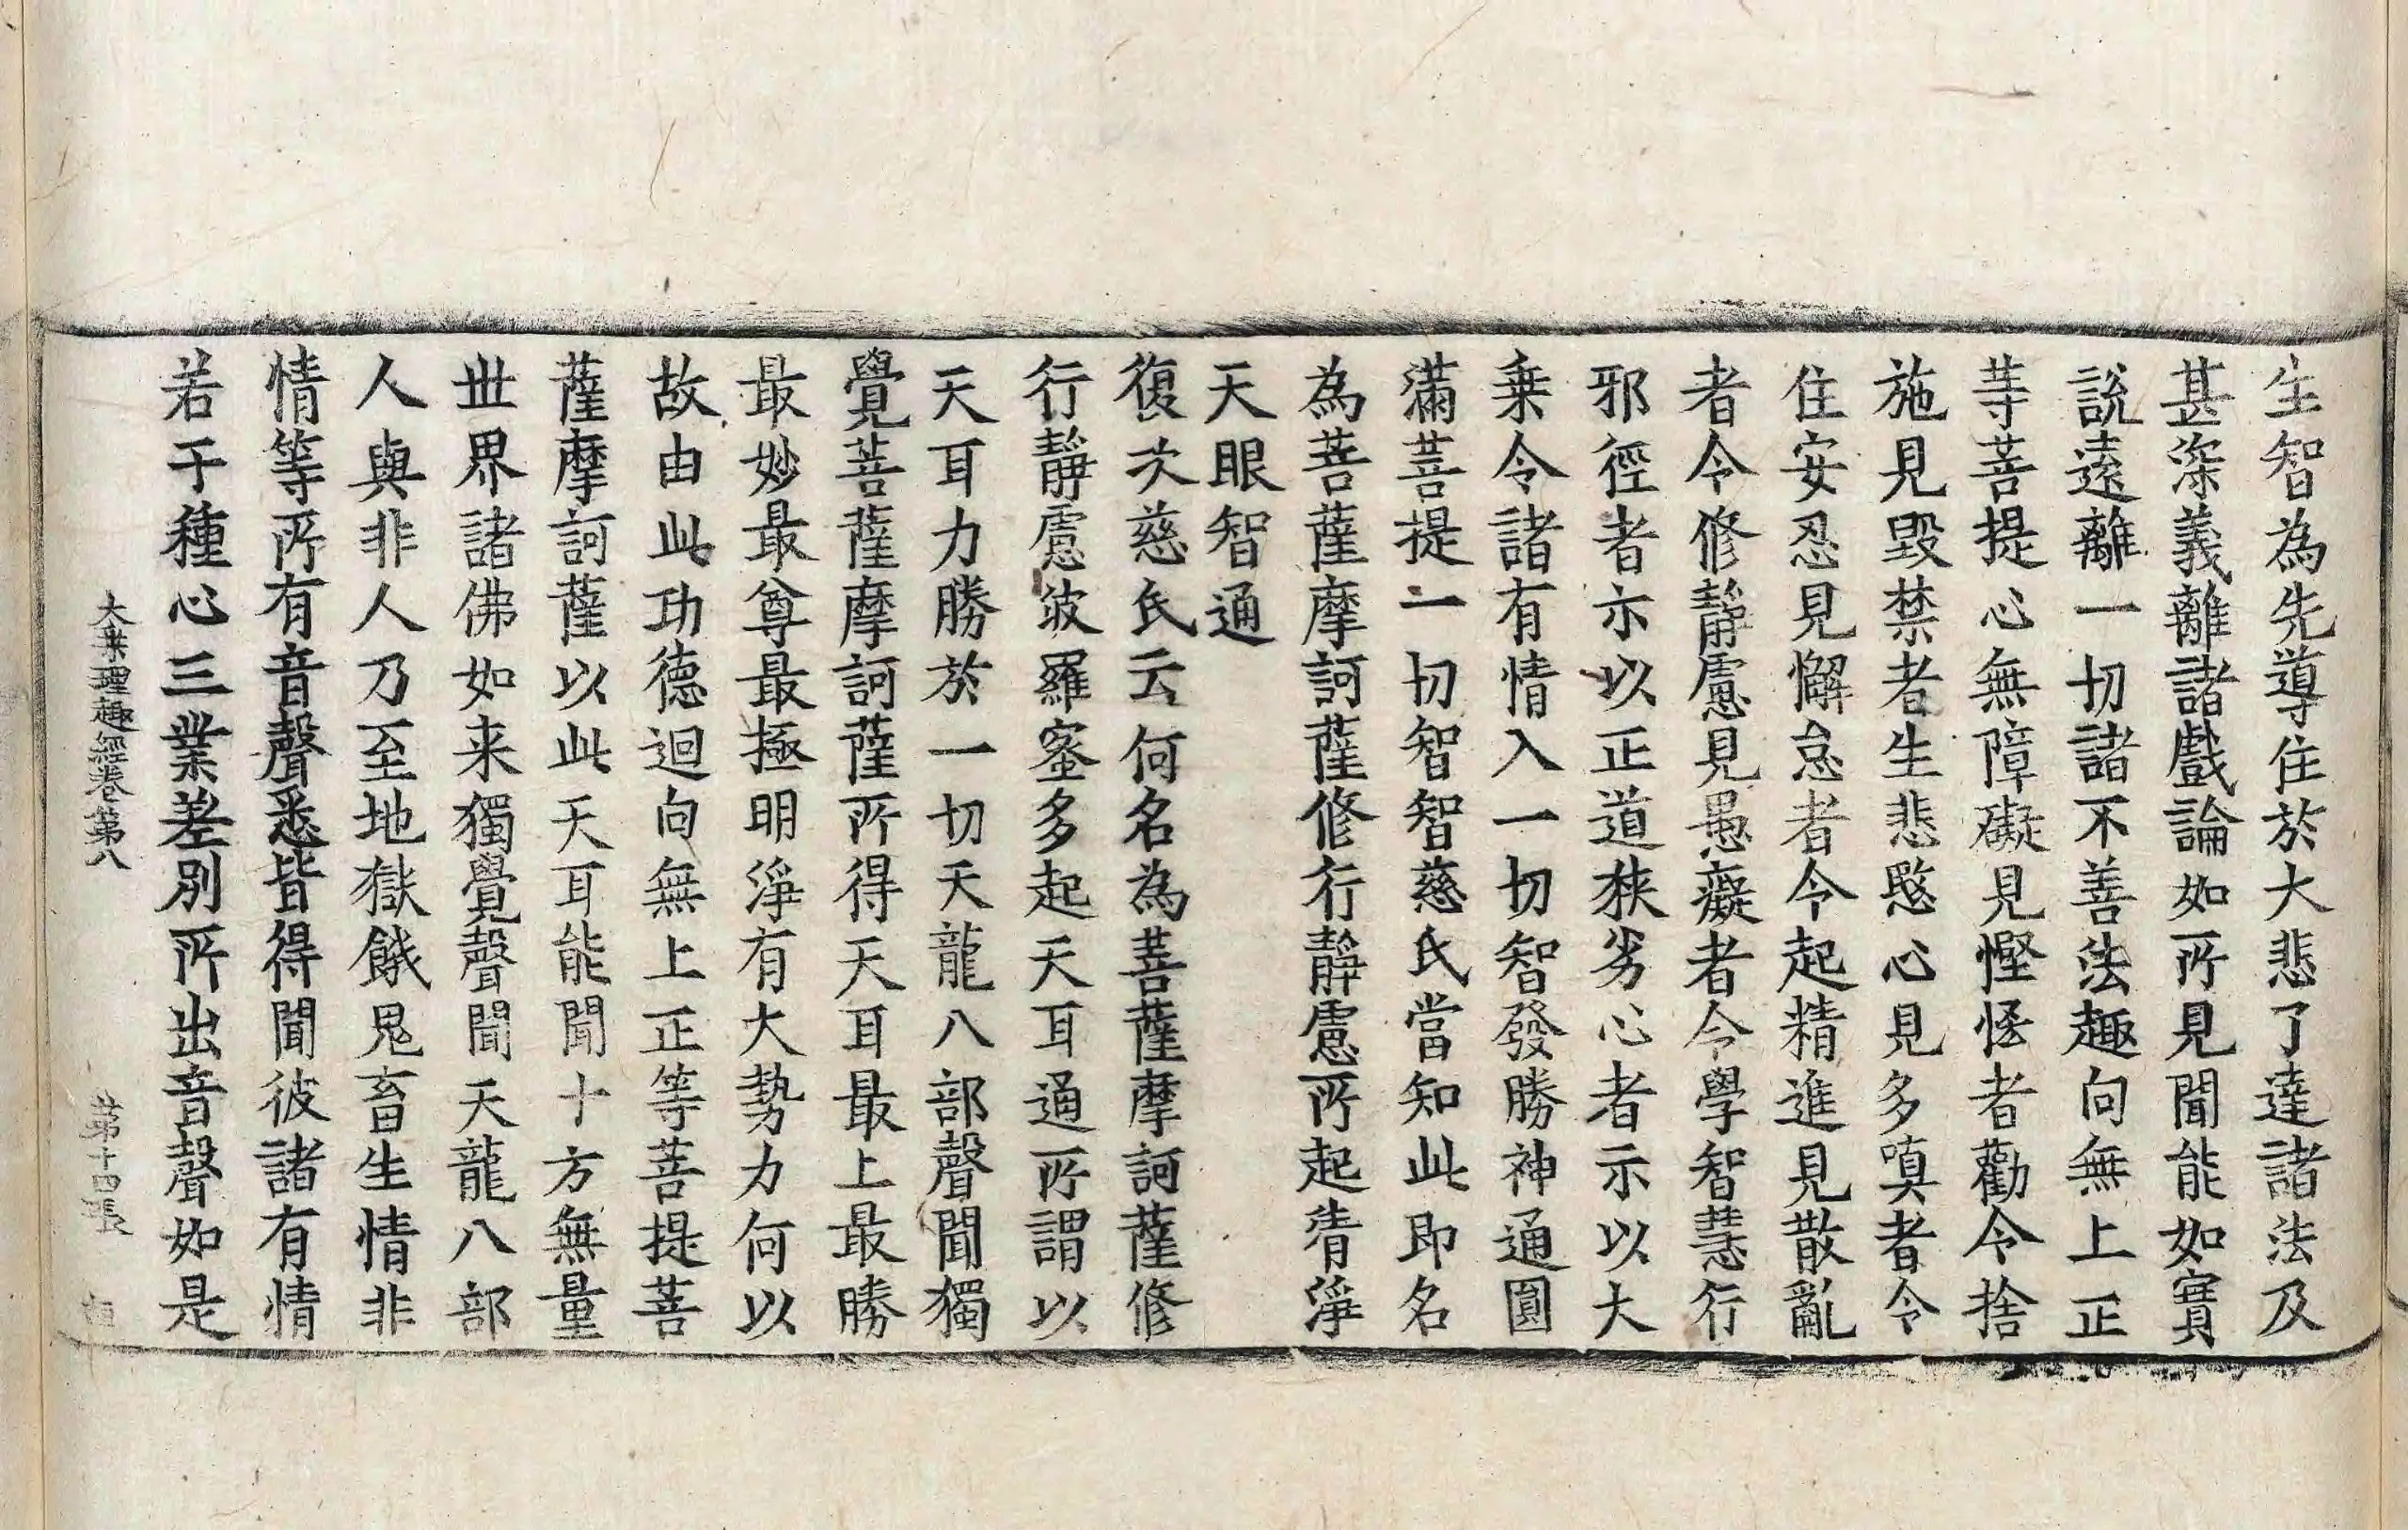 生智為先導住於大悲了達諸法及
甚深義離諸戲論如所見聞能如實
說遠離一切諸不善法趣向無上正
等菩提心無障礙見慳悋者勸令捨
施見毀禁者生悲愍心見多嗔者令
住安忍見懈怠者令起精進見散亂
者令修靜慮見愚癡者令學智慧行
邪徑者示以正道狹劣心者示以大
乗令諸有情入一切智發勝神通圓
滿菩提一切智智慈氏當知此即名
為菩薩摩訶薩修行靜慮所起清淨
天眼智通
復次慈氏云何名為菩薩摩訶薩修
行靜慮波羅蜜多起天耳通所謂以
天耳力勝於一切天龍八部聲聞獨
覺菩薩摩訶薩所得天耳最上最勝
最妙最尊最極明淨有大勢力何以
故由此功德迴向無上正等菩提菩
薩摩訶薩以此天耳能聞十方無量
世界諸佛如来獨覺聲聞天龍八部
人與非人乃至地獄餓鬼畜生情非
情等所有音聲悉皆得聞彼諸有情
若干種心三業差別所出音聲如是
大乗理趣經卷第八 第十四張